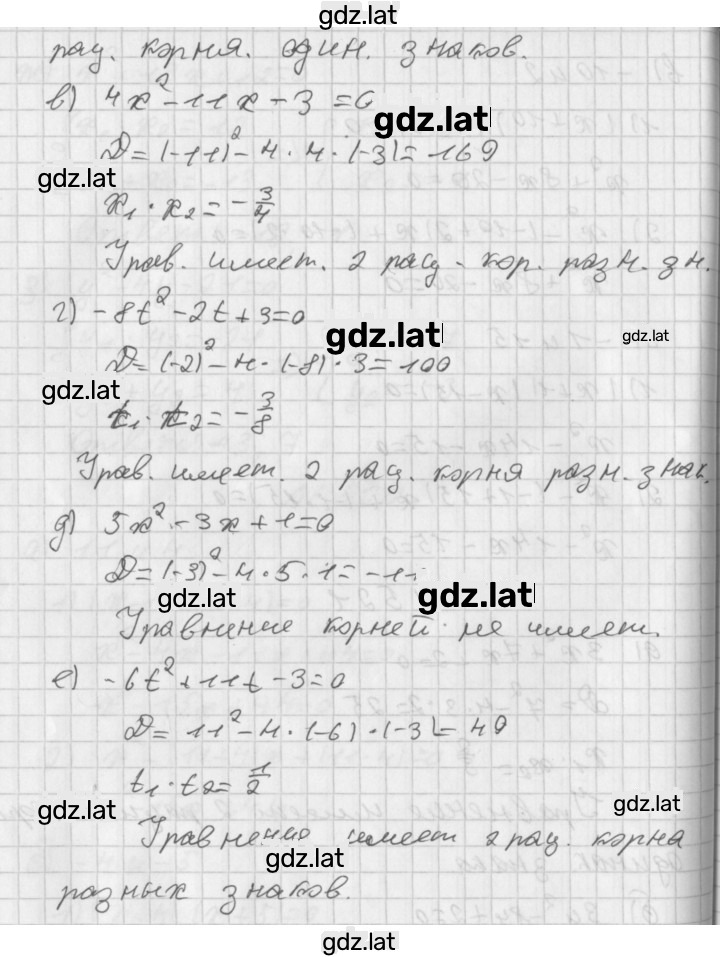 gdz.lat
рац. корня. один. знаков.
в) 4x² - 11x - 3 = 0
gdz.lat
D = (-11)² - 4 · 4 · (-3) = 169
gdz.lat
x₁ · x₂ = - 3/4
Урав. имеет. 2 рац - кор. разн. зн.
г) -8t² - 2t + 3 = 0
gdz.lat
gdz.lat
D = (-2)² - 4 · (-8) · 3 = 100
gdz.lat
t₁ · t₂ = - 3/8
Урав. имеет. 2 рац. корня разн. знак.
д) 5x² - 3x + 1 = 0
D = (-3)² - 4 · 5 · 1 = -11
gdz.lat
gdz.lat
Уравнение корней не имеет.
е) -6t² + 11t - 3 = 0
D = 11² - 4 · (-6) · (-3) = 49
t₁ · t₂ = 1/2
gdz.lat
gdz.lat
Уравнение имеет 2 рац. корна
gdz.lat
разных знаков.
gdz.lat